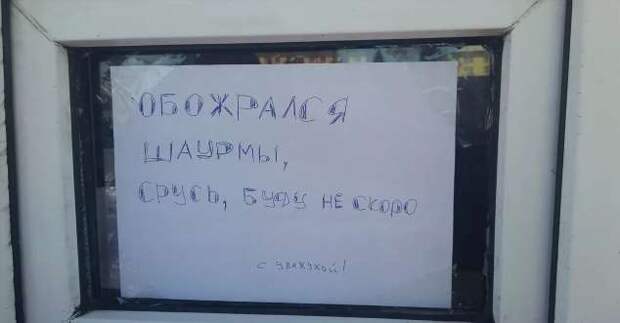 ОБОЖРАЛСЯ
ШАУРМЫ,
СРУСЬ, БУДУ НЕ СКОРО
с уважухой!